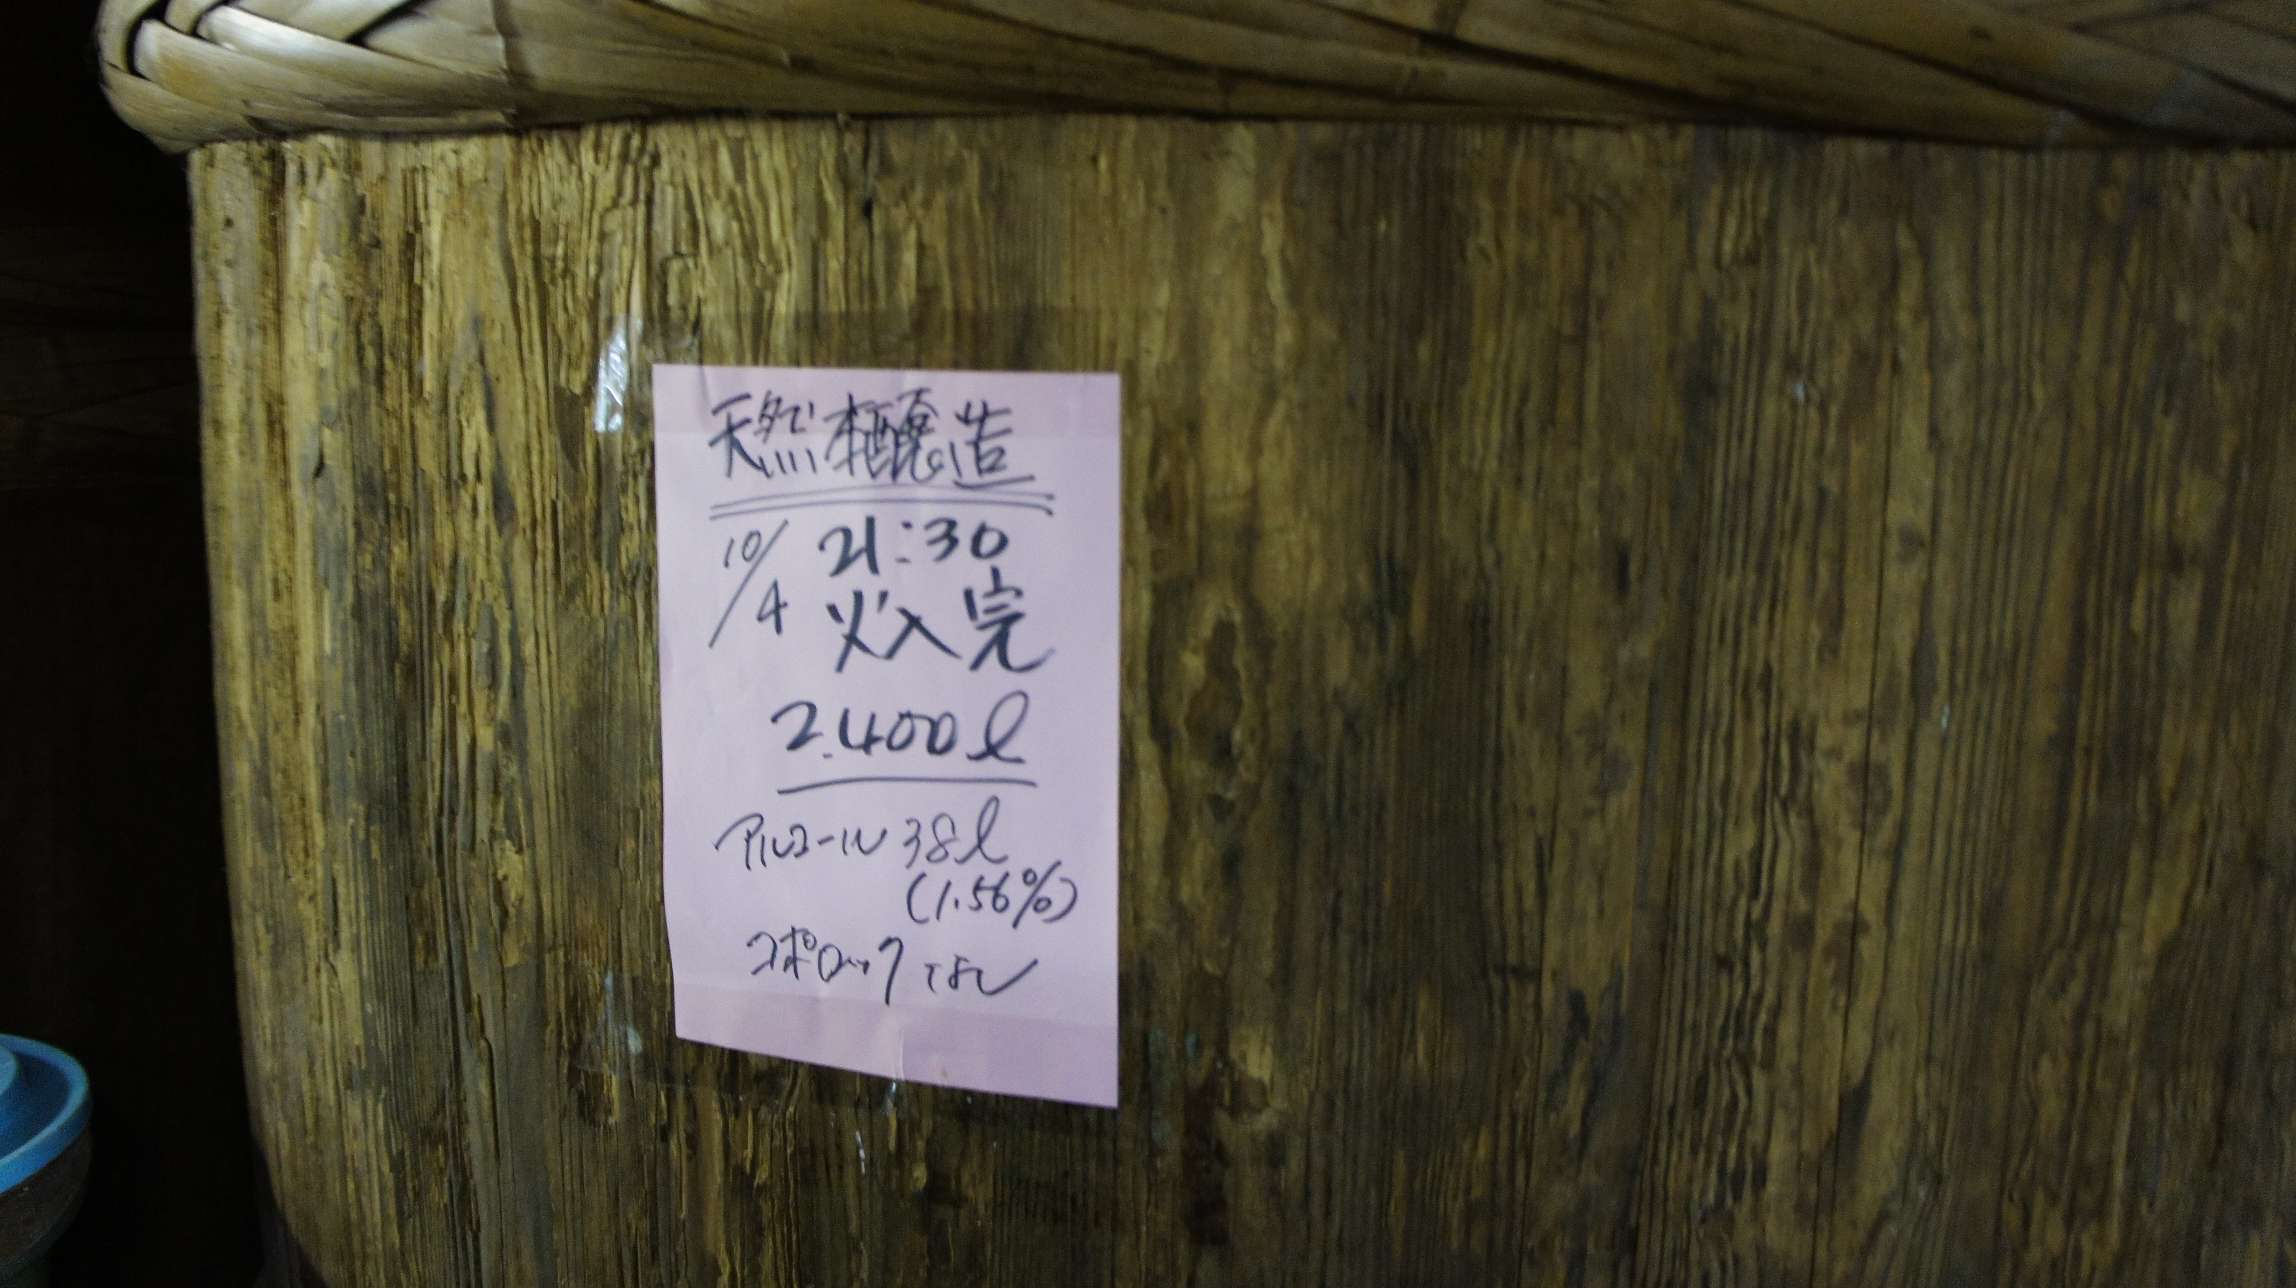 天然本醸造
10/4 21:30
火入完
2.400ℓ
アルコール 38ℓ
(1.56%)
スポロック なし